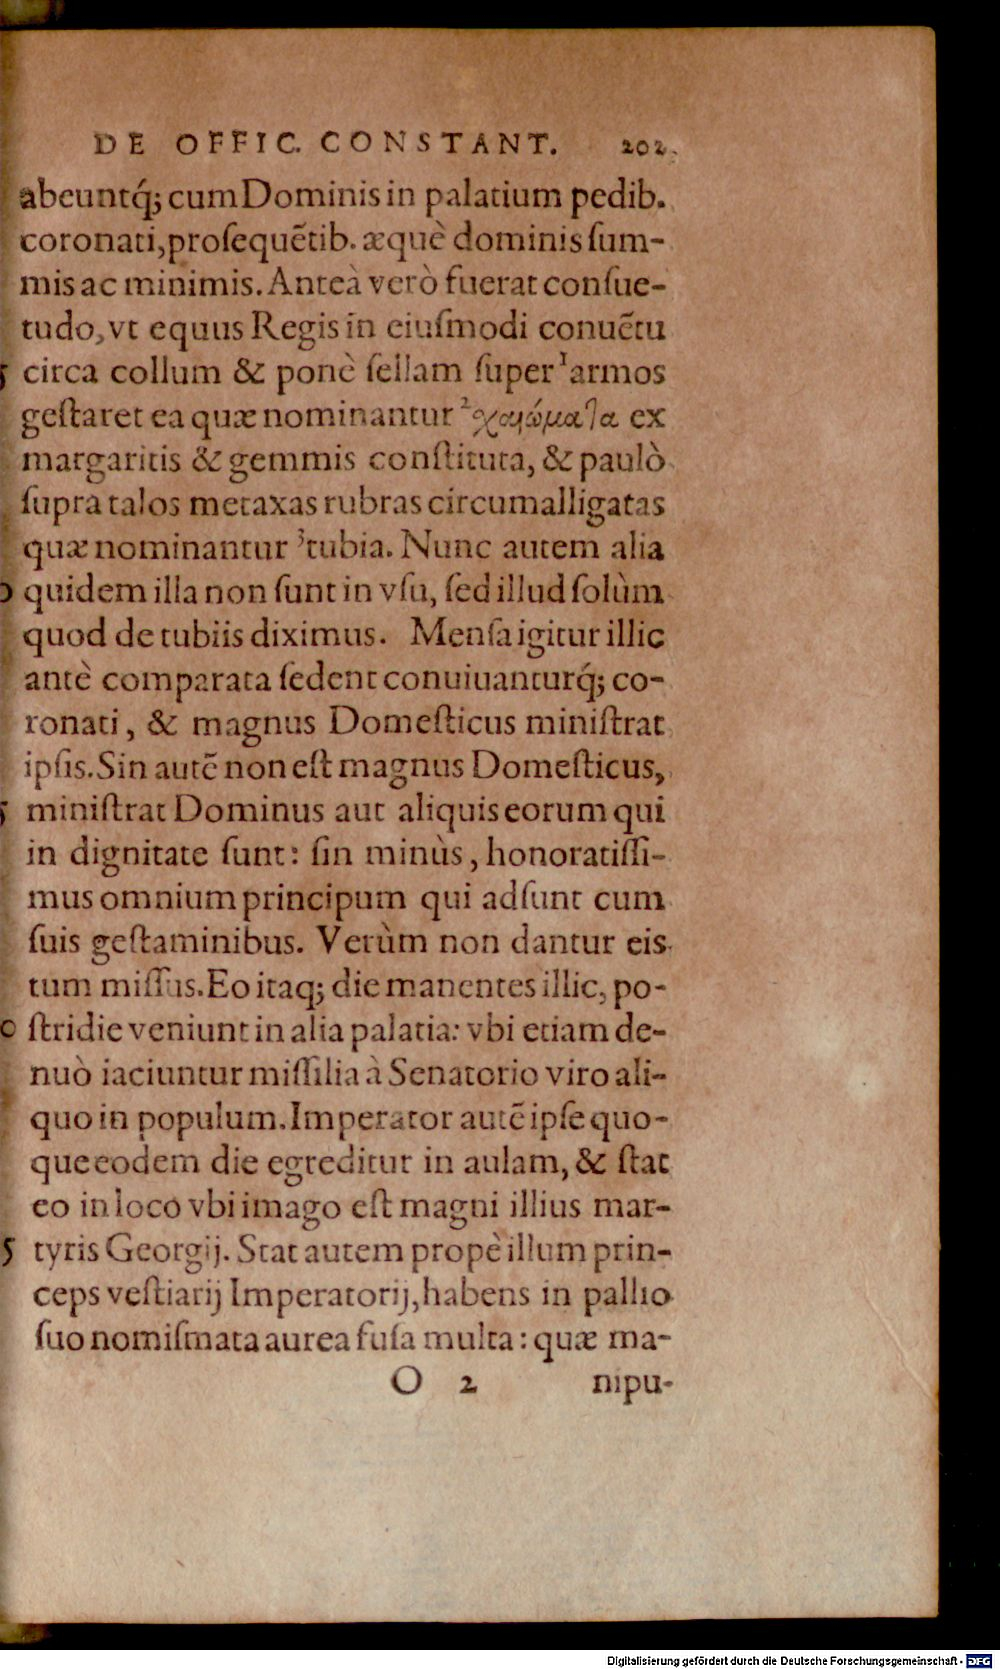 DE OFFIC. CONSTANT. 202.
abeuntq́; cum Dominis in palatium pedib.
coronati, proſequẽtib. æquè dominis ſum-
mis ac minimis. Anteà verò fuerat conſue-
tudo, vt equus Regis in eiuſmodi conuẽtu
5 circa collum & ponè ſellam ſuper ¹armos
geſtaret ea quæ nominantur ²χαιώματα ex
margaritis & gemmis conſtituta, & paulò
ſupra talos metaxas rubras circumalligatas
quæ nominantur ³tubia. Nunc autem alia
quidem illa non ſunt in vſu, ſed illud ſolùm
quod de tubiis diximus. Menſa igitur illic
antè comparata ſedent conuiuanturq́; co-
ronati, & magnus Domeſticus miniſtrat
ipſis. Sin autẽ non eſt magnus Domeſticus,
5 miniſtrat Dominus aut aliquis eorum qui
in dignitate ſunt: ſin minùs, honoratiſſi-
mus omnium principum qui adſunt cum
ſuis geſtaminibus. Verùm non dantur eis
tum miſſus. Eo itaq; die manentes illic, po-
0 ſtridie veniunt in alia palatia: vbi etiam de-
nuò iaciuntur miſſilia à Senatorio viro ali-
quo in populum. Imperator autẽ ipſe quo-
que eodem die egreditur in aulam, & ſtat
eo in loco vbi imago eſt magni illius mar-
5 tyris Georgij. Stat autem propè illum prin-
ceps veſtiarij Imperatorij, habens in pallio
ſuo nomiſmata aurea fuſa multa: quæ ma-
O 2 nipu-
Digitalisierung gefördert durch die Deutsche Forschungsgemeinschaft - DFG